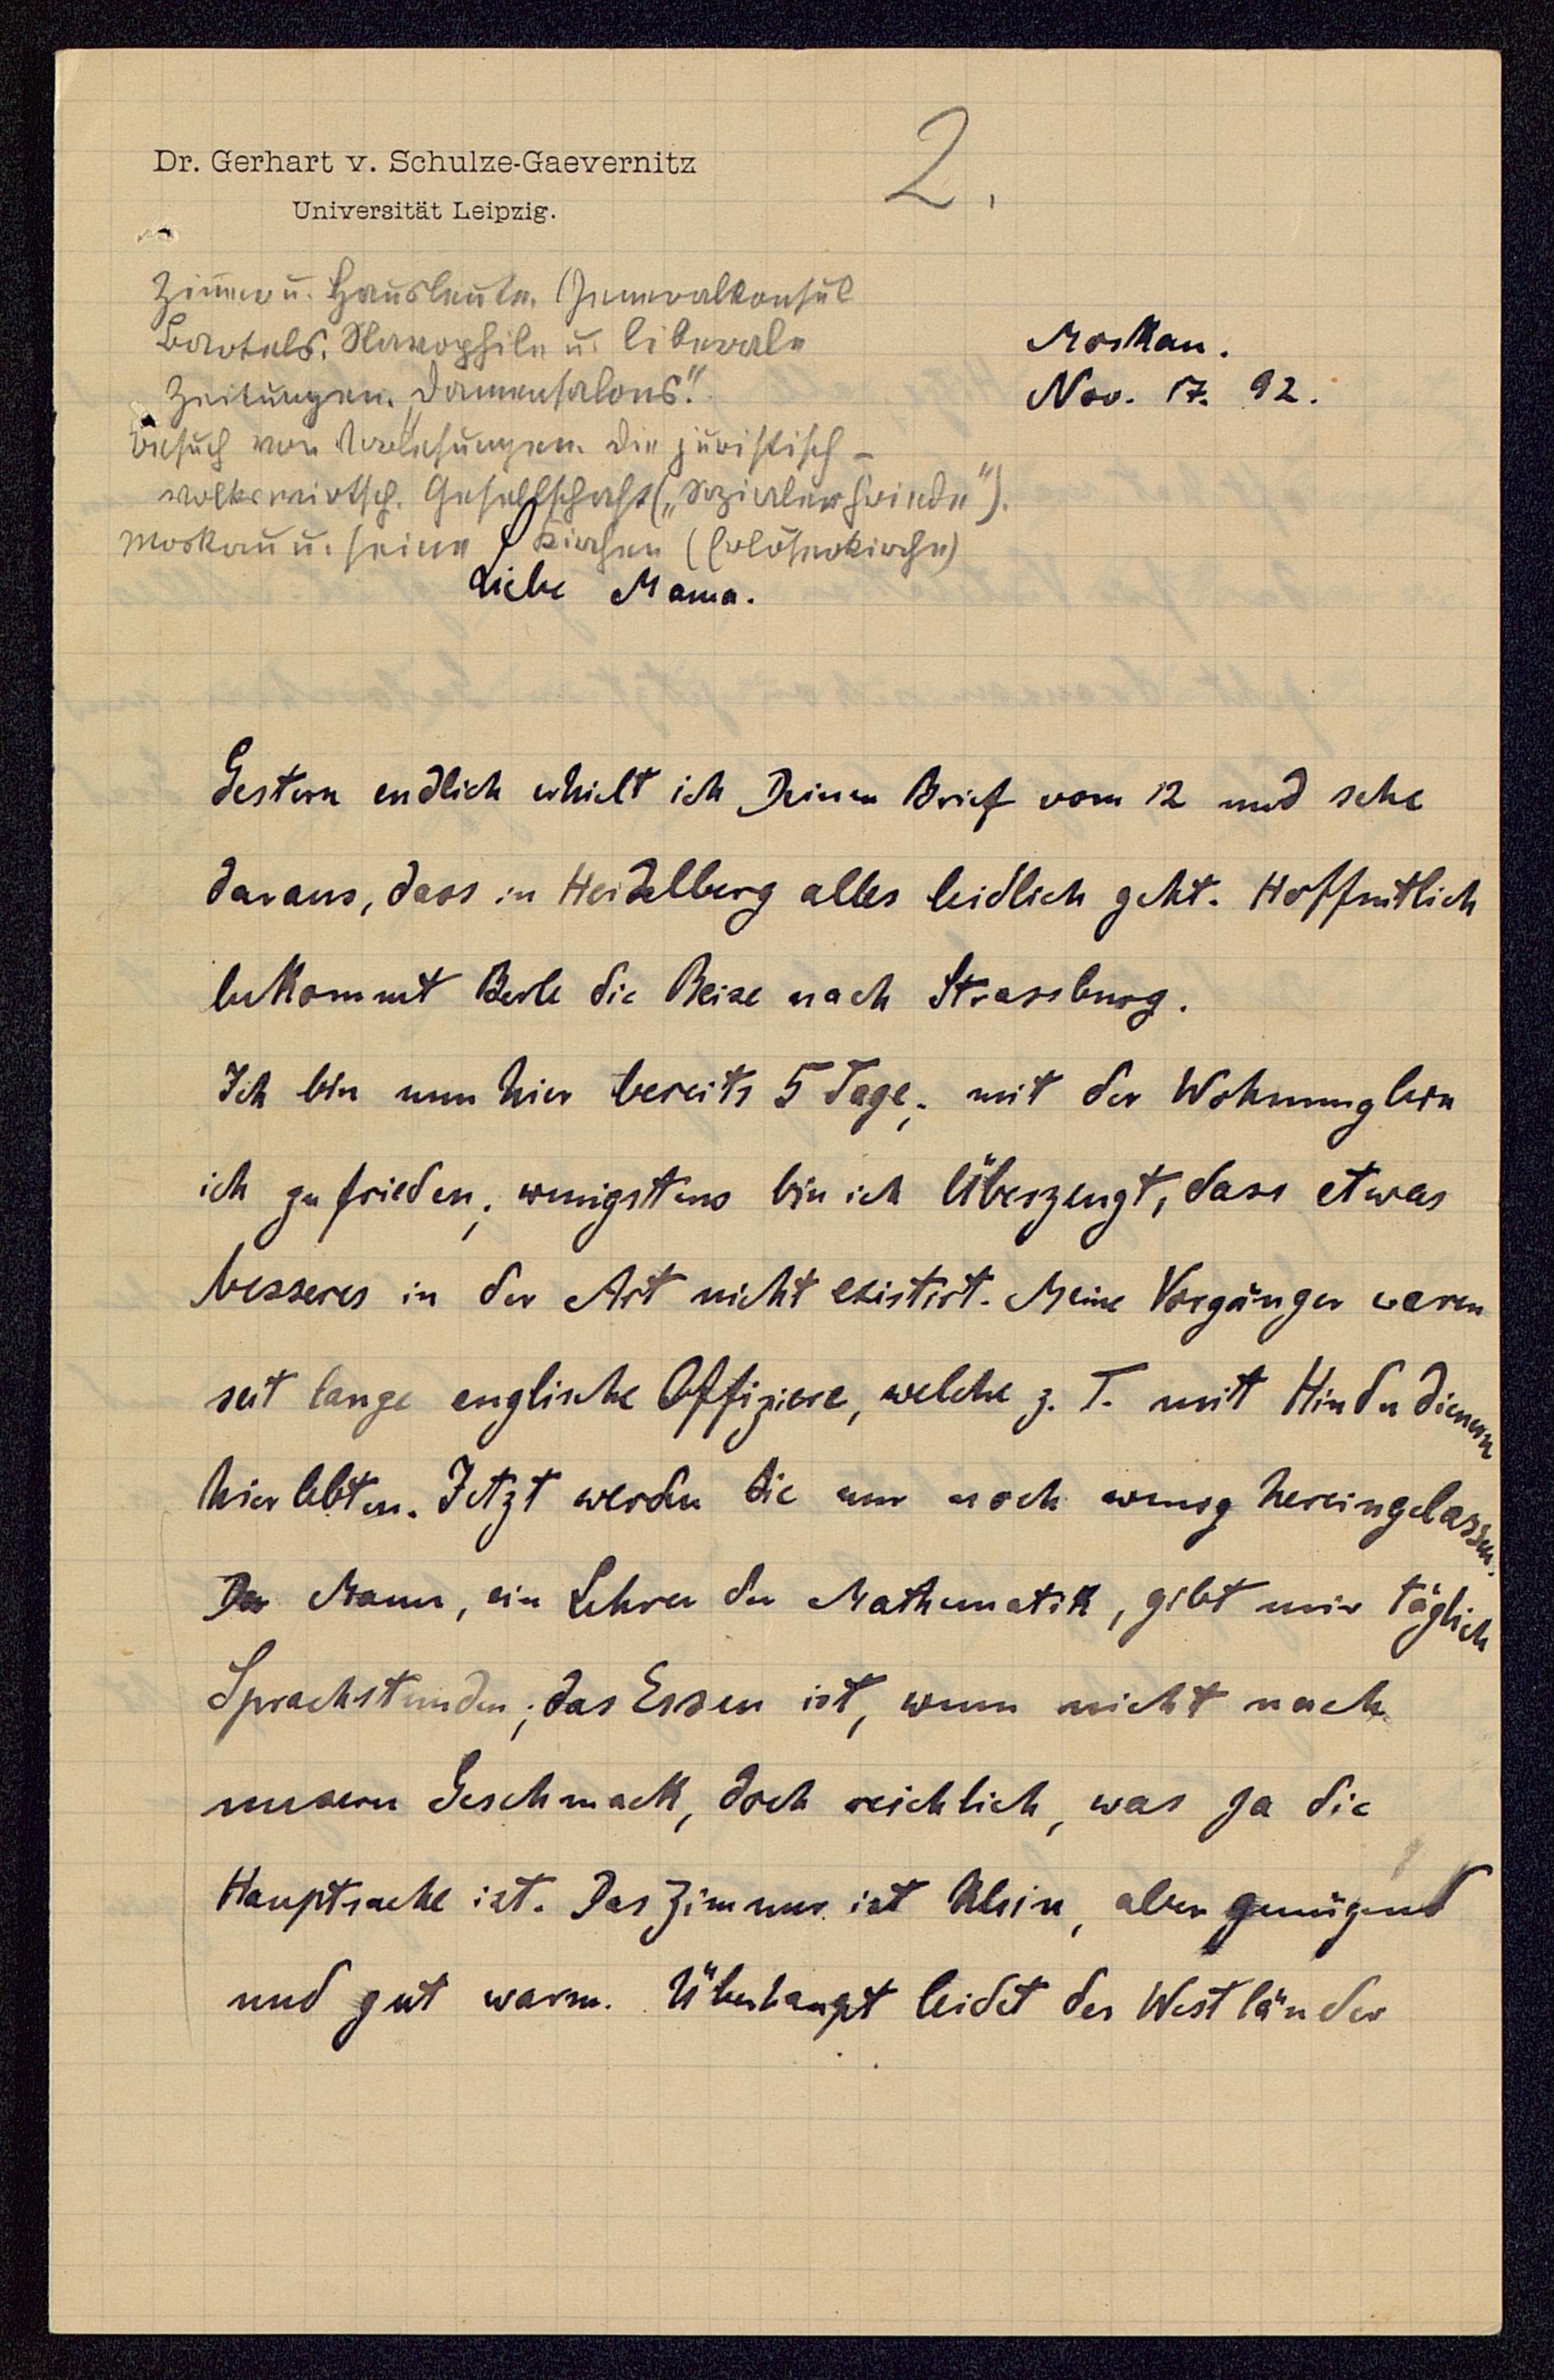 2.
Dr. Gerhart v. Schulze-Gaevernitz
Universität Leipzig.
Zimmer u. Hausleute. Generalkonsul
Bartels. Slavophile u. liberale
Zeitungen. „Damensalons".
Besuch von Vorlesungen. Die juristisch-
volkswirtsch. Gesellschaft („Sozialer Friede").
Moskau u. seine Kirchen (Erlöserkirche)
Moskau.
Nov. 17. 92.
Liebe Mama.
Gestern endlich erhielt ich Deinen Brief vom 12 und sehe
daraus, dass in Heidelberg alles leidlich geht. Hoffentlich
bekommt die Reise nach Strassburg.
Ich bin nun hier bereits 5 Tage; mit der Wohnung bin
ich zufrieden; wenigstens bin ich Überzeugt, dass etwas
besseres in der Art nicht existirt. Meine Vorgänger waren
seit lange englische Offiziere, welche z. T. mit Hindudienern
hier lebten. Jetzt werden die nur noch wenig hereingelassen.
Der Mann, ein Lehrer der Mathematik, gibt mir täglich
Sprachstunden; das Essen ist, wenn nicht nach
unsern Geschmack, doch reichlich, was ja die
Hauptsache ist. Das Zimmer ist klein, aber genügend
und gut warm. Überhaupt leidet der Westländer